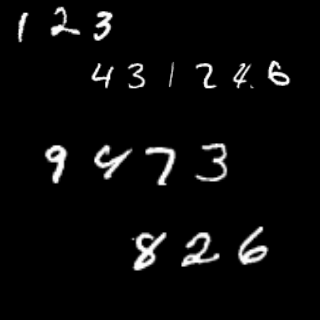 123
431246
9473
826